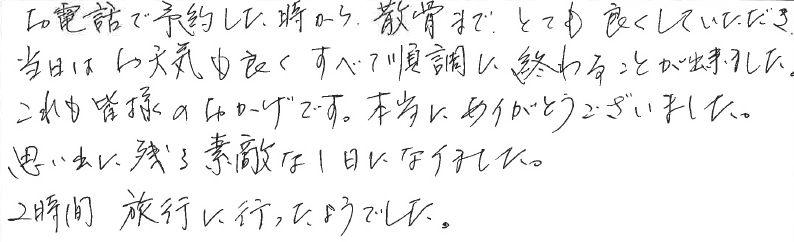 お電話で予約した時から、散骨まで、とても良くしていただき、
当日はお天気も良くすべて順調に終わることが出来ました。
これも皆様のおかげです。本当にありがとうございました。
思い出に残る素敵な1日になりました。
2時間 旅行に行ったようでした。